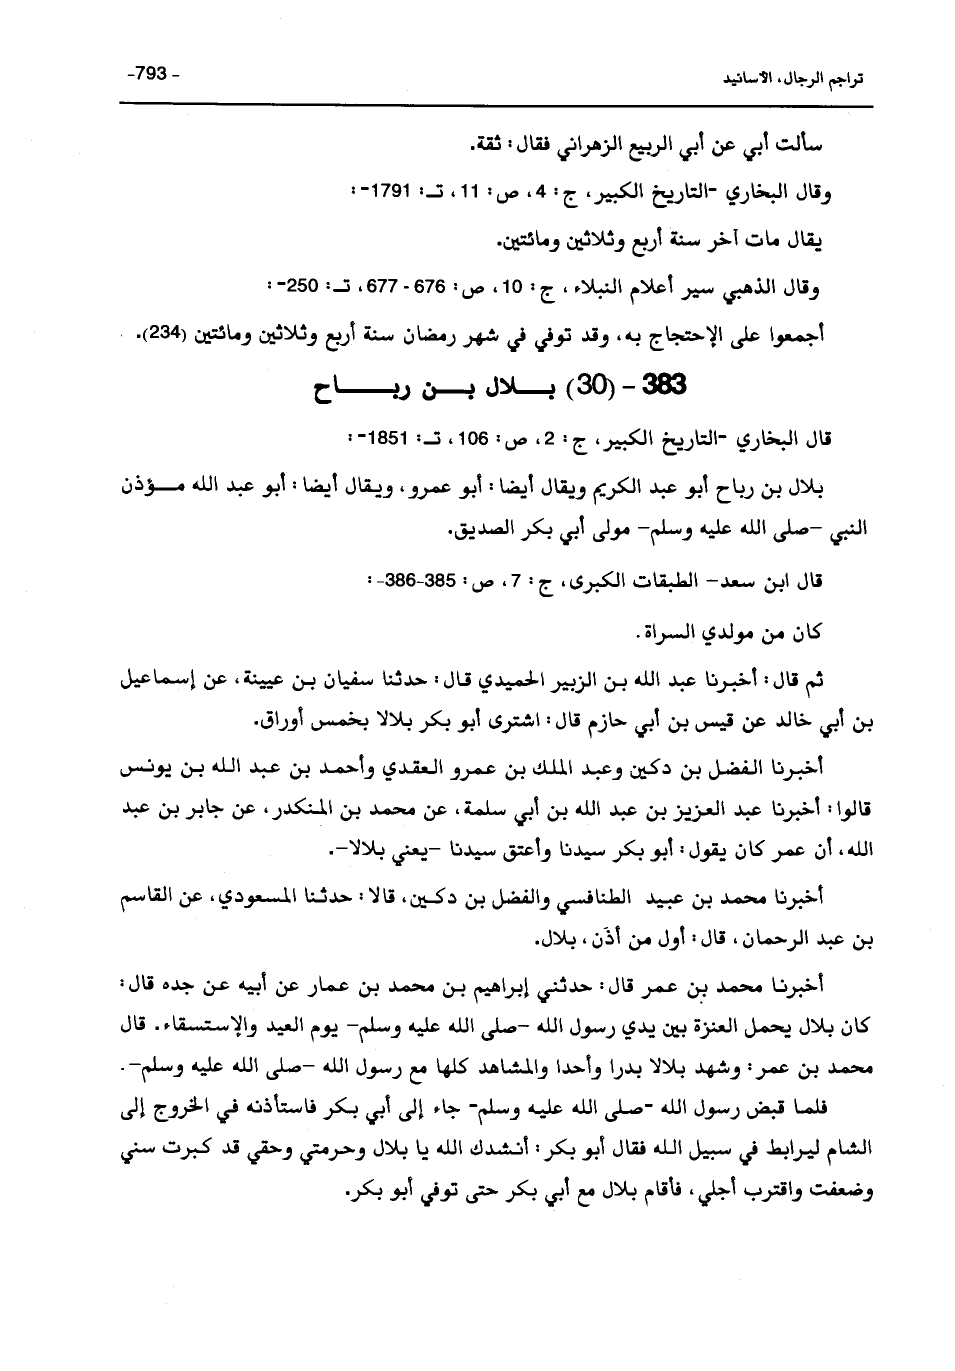 تراجم الرجال، الآسانيد -793 -
سألت أبي عن أبي الربيع الزهراني فقال: ثقة.
وقال البخاري -التاريخ الكبير، ج: 4، ص: 11، تـ: 1791-:
يقال مات آخر سنة أربع وثلاثين ومائتين.
وقال الذهبي سير أعلام النبلاء، ج: 10، ص: 676 - 677، تـ: 250-:
أجمعوا على الإحتجاج به، وقد توفي في شهر رمضان سنة أربع وثلاثين ومائتين (234).
383 - (30) بــلال بــن ربــاح
قال البخاري -التاريخ الكبير، ج: 2، ص: 106، تـ: 1851-:
بلال بن رباح أبو عبد الكريم ويقال أيضا: أبو عمرو، ويقال أيضا: أبو عبد الله مــؤذن
النبي -صلى الله عليه وسلم- مولى أبي بكر الصديق.
قال ابن سعد- الطبقات الكبرى، ج: 7، ص: 385-386-:
كان من مولدي السراة.
ثم قال: أخبرنا عبد الله بن الزبير الحميدي قال: حدثنا سفيان بن عيينة، عن إسماعيل
بن أبي خالد عن قيس بن أبي حازم قال: اشترى أبو بكر بلالا بخمس أوراق.
أخبرنا الفضل بن دكين وعبد الملك بن عمرو العقدي وأحمد بن عبد الله بن يونس
قالوا: أخبرنا عبد العزيز بن عبد الله بن أبي سلمة، عن محمد بن المنكدر، عن جابر بن عبد
الله، أن عمر كان يقول: أبو بكر سيدنا وأعتق سيدنا -يعني بلالا-.
أخبرنا محمد بن عبيد الطنافسي والفضل بن دكين، قالا: حدثنا المسعودي، عن القاسم
بن عبد الرحمان، قال: أول من أذّن، بلال.
أخبرنا محمد بن عمر قال: حدثني إبراهيم بن محمد بن عمار عن أبيه عن جده قال:
كان بلال يحمل العنزة بين يدي رسول الله -صلى الله عليه وسلم- يوم العيد والإستسقاء. قال
محمد بن عمر: وشهد بلالا بدرا وأحدا والمشاهد كلها مع رسول الله -صلى الله عليه وسلم-.
فلما قبض رسول الله -صلى الله عليه وسلم- جاء إلى أبي بكر فاستأذنه في الخروج إلى
الشام ليرابط في سبيل الله فقال أبو بكر: أنشدك الله يا بلال وحرمتي وحقي قد كبرت سني
وضعفت واقترب أجلي، فأقام بلال مع أبي بكر حتى توفي أبو بكر.